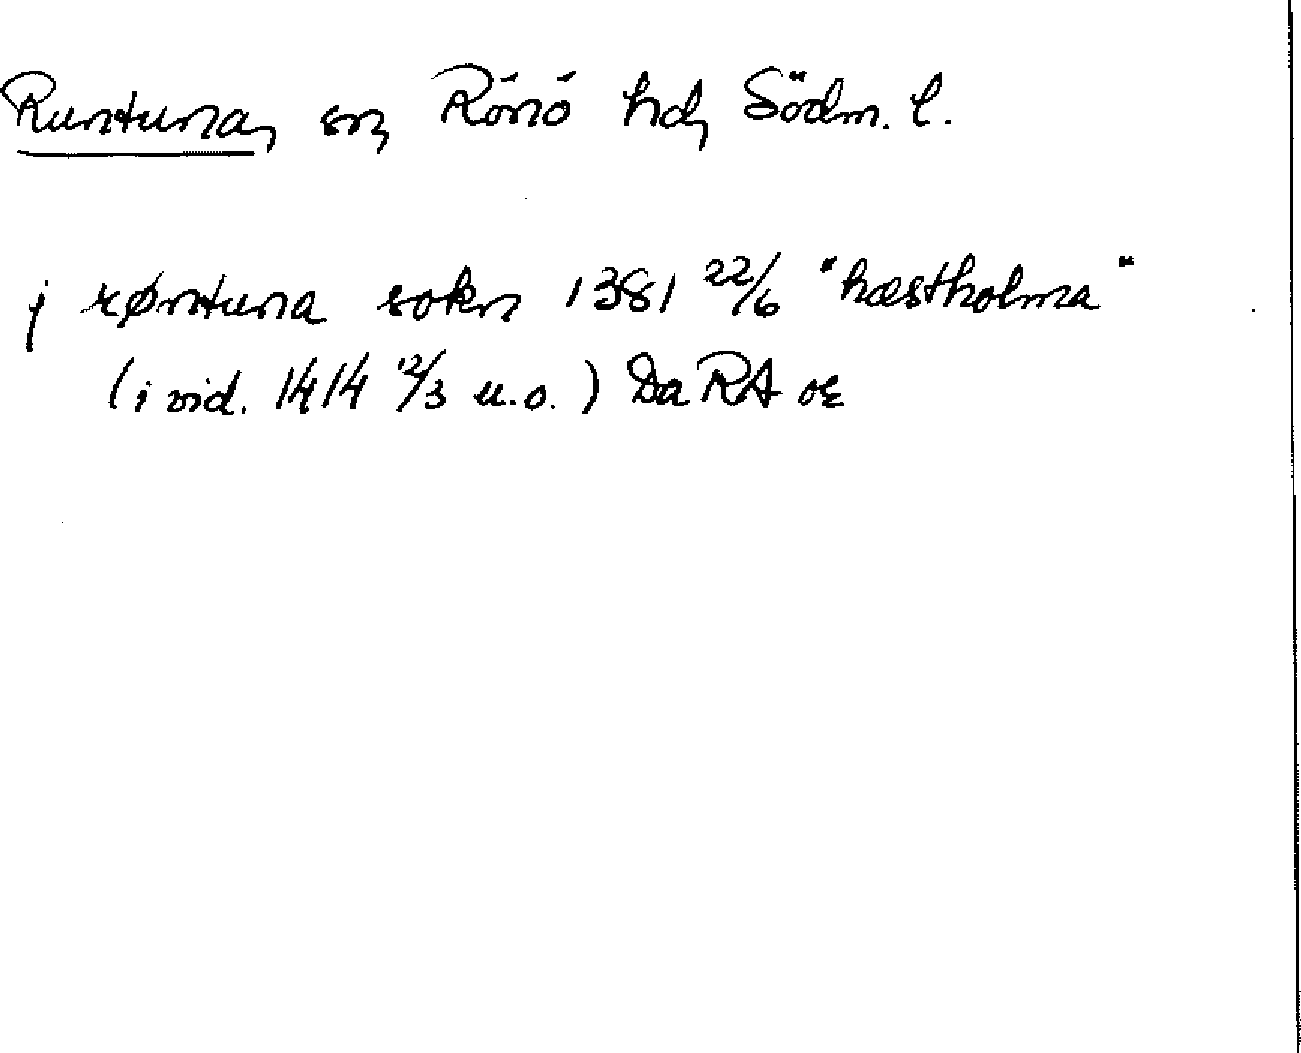 Runtuna, sn, Rönö hd, Södm. l.
j røntuna sokn 1381 22/6 "hæstholma"
(i vid. 1414 12/3 u.o.) Da RA oc